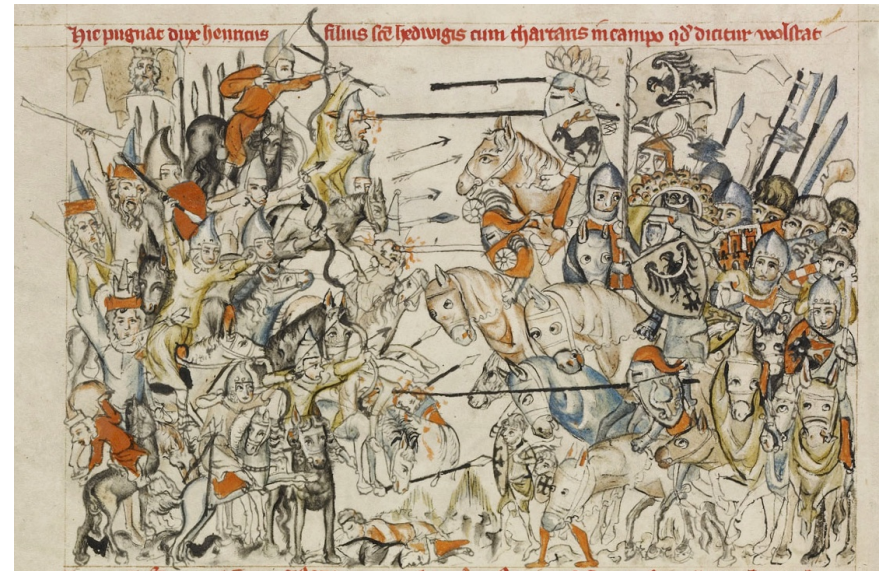 Hic pugnat dux henricus filius scē hedwigis cum thartaris in campo qđ dicitur wolstat